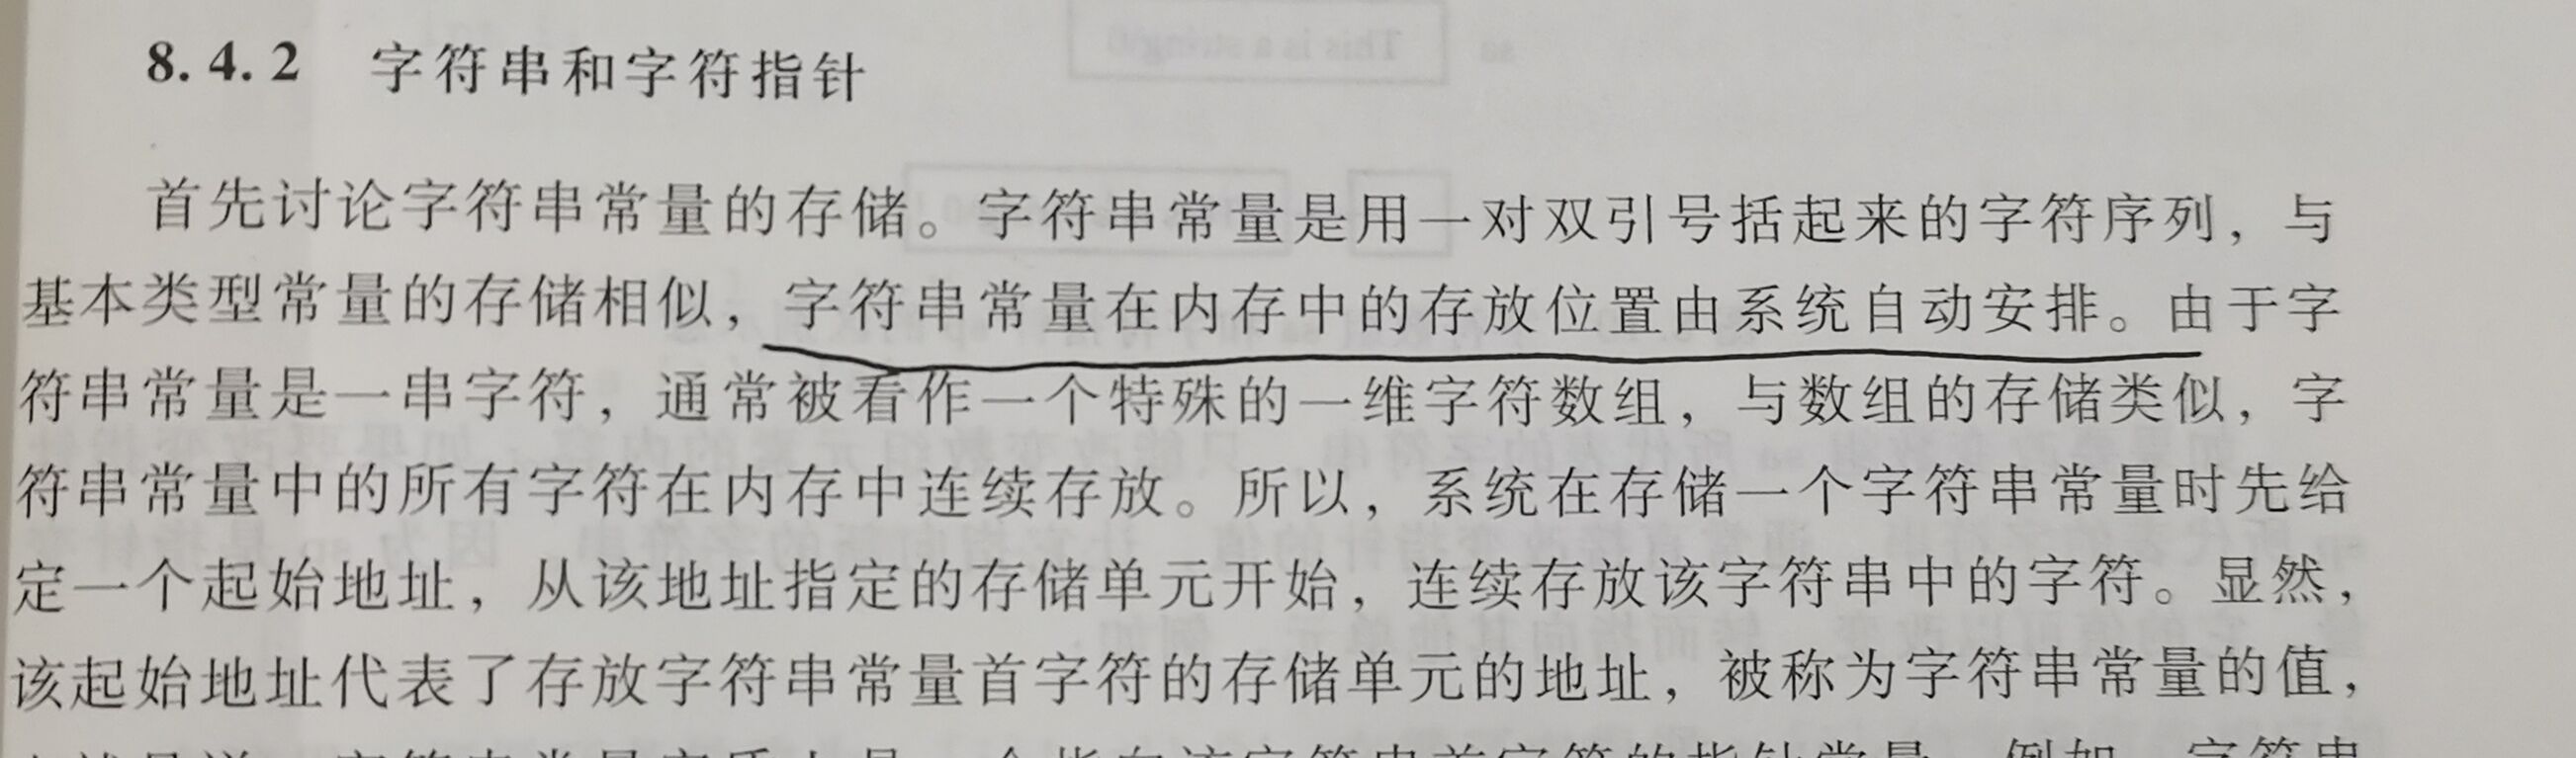 8.4.2 字符串和字符指针
首先讨论字符串常量的存储。字符串常量是用一对双引号括起来的字符序列，与
基本类型常量的存储相似，字符串常量在内存中的存放位置由系统自动安排。由于字
符串常量是一串字符，通常被看作一个特殊的一维字符数组，与数组的存储类似，字
符串常量中的所有字符在内存中连续存放。所以，系统在存储一个字符串常量时先给
定一个起始地址，从该地址指定的存储单元开始，连续存放该字符串中的字符。显然，
该起始地址代表了存放字符串常量首字符的存储单元的地址，被称为字符串常量的值，